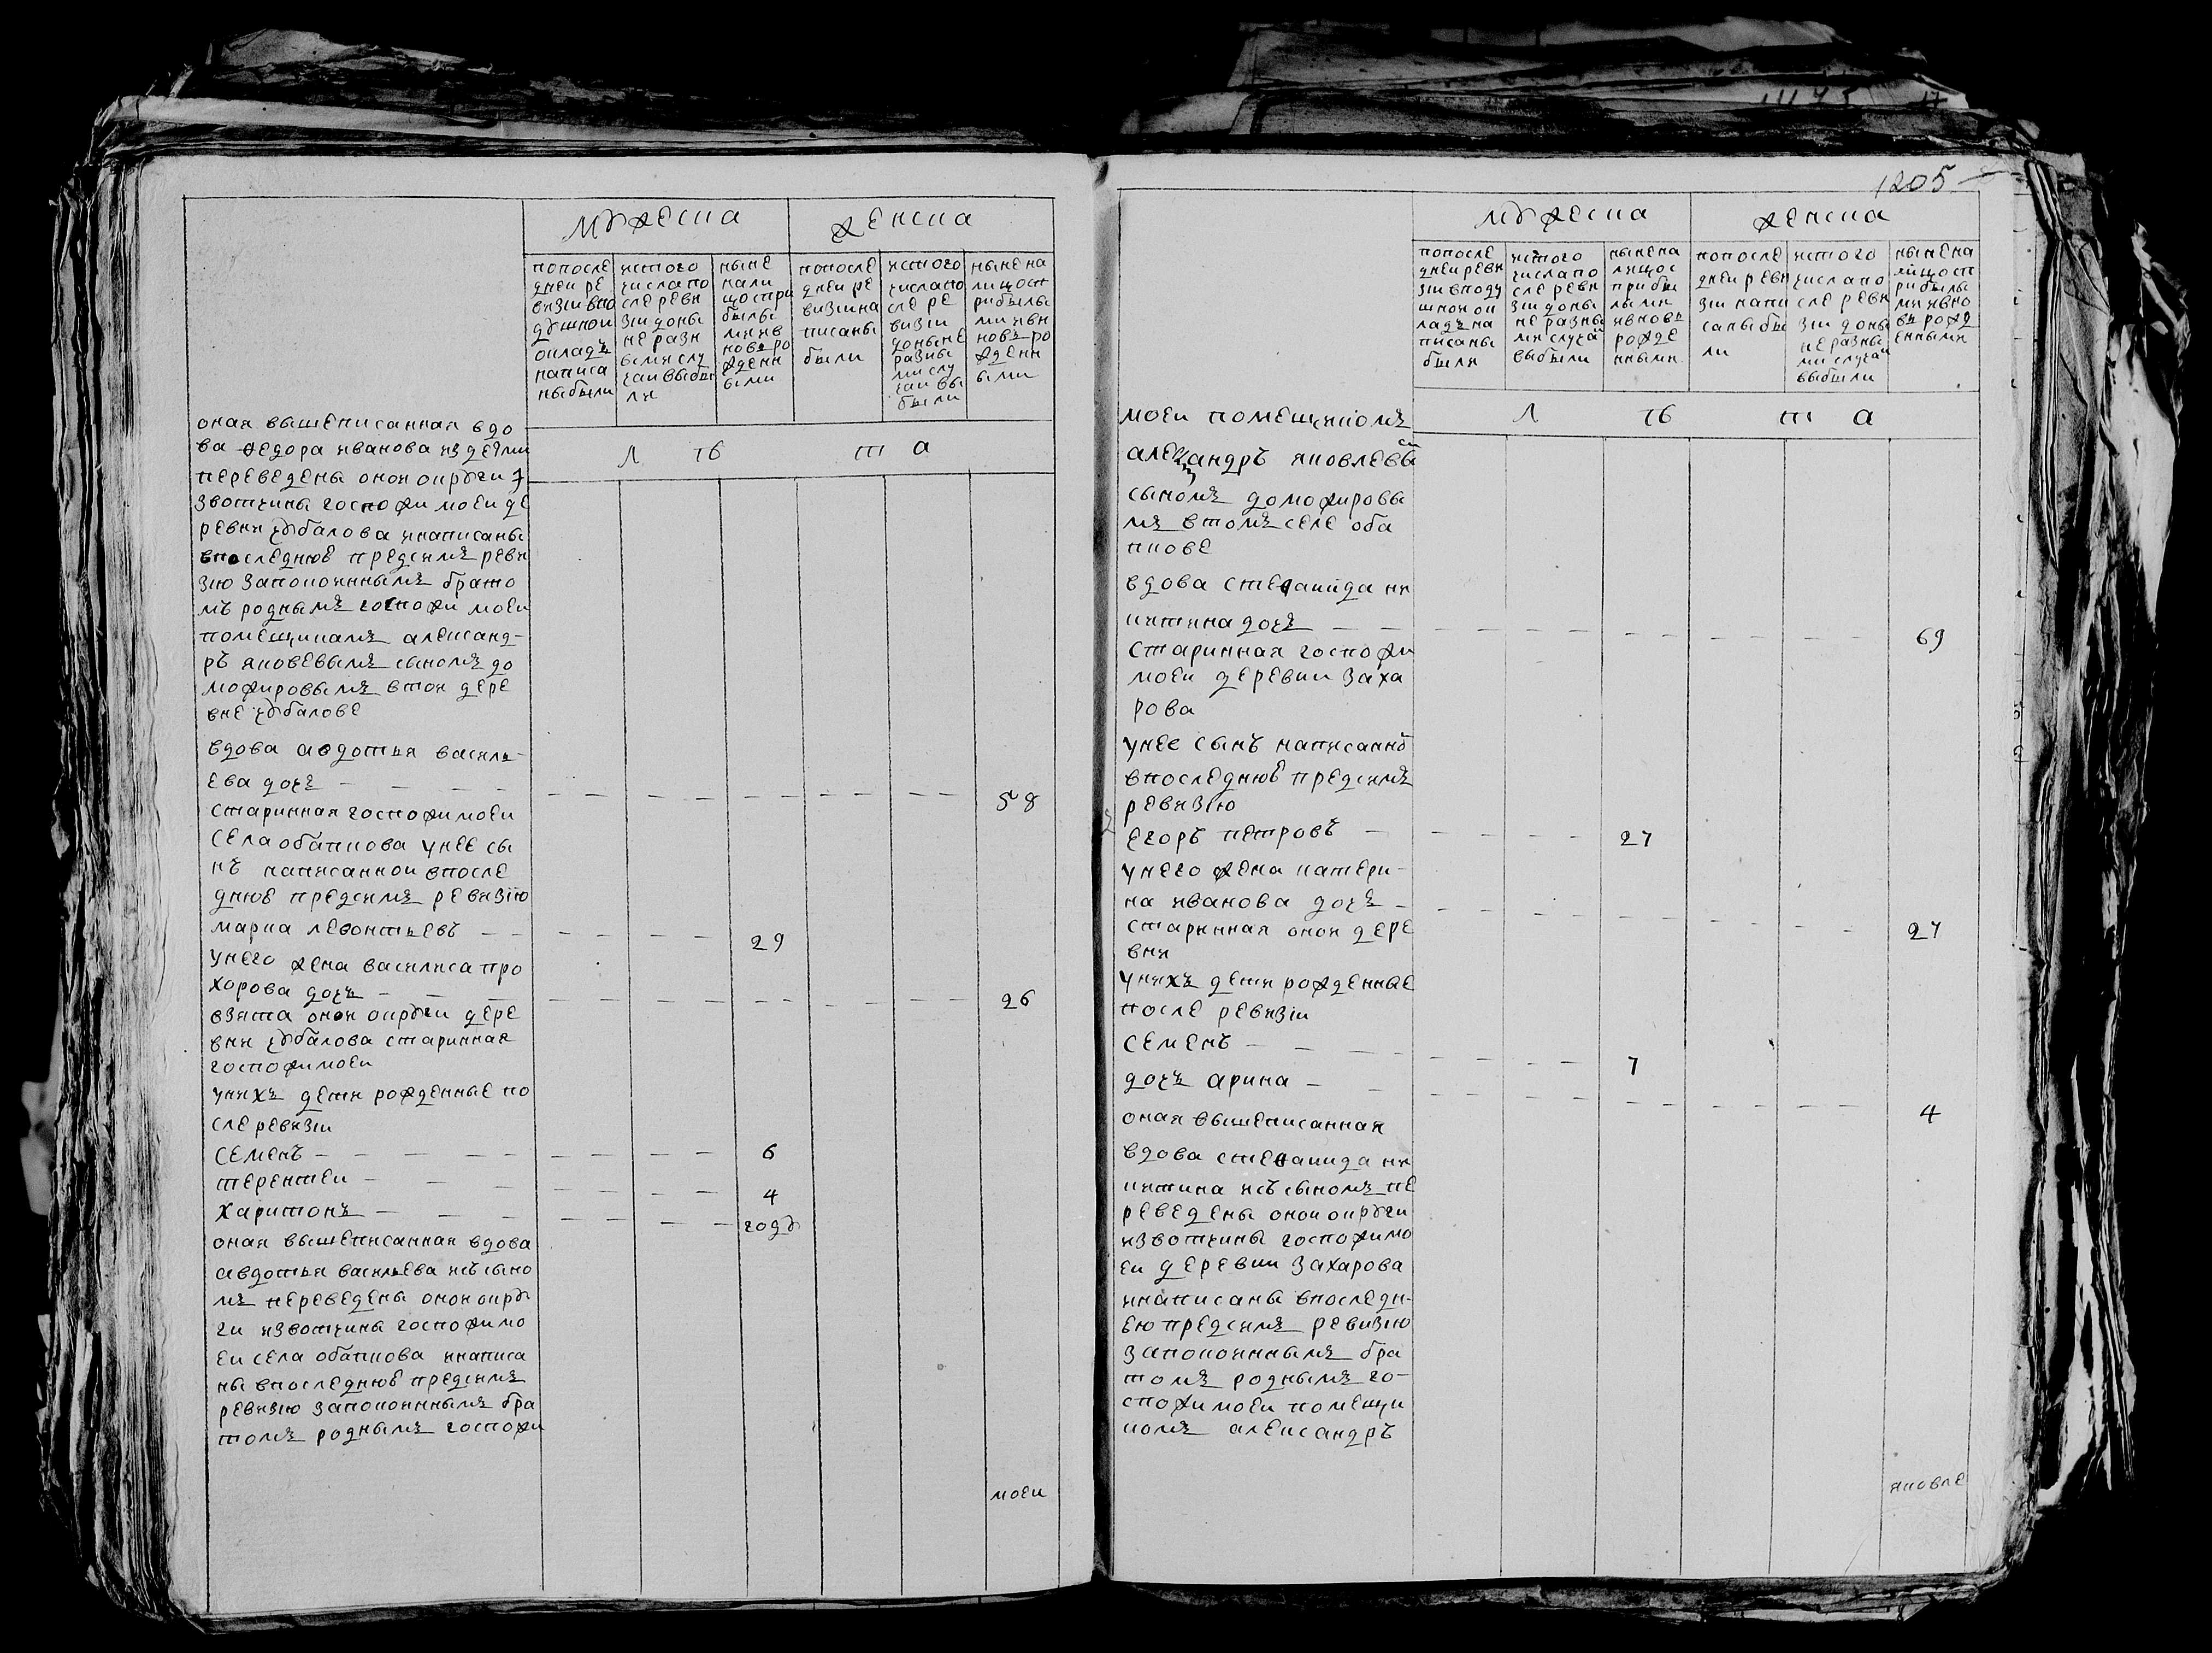 мужеска
женска
попосле
дней ре
визіи впо
душной
окладъ
написа
ны были
истого
числа по
сле реви
зіи доны
не разн
ыми слу
чаи выбы
ли
ныне
нали
цо с при
былы
ми и в
новъ ро
жденн
ыми
попосле
дней ре
визіи на
писаны
были
истого
числапо
сле ре
визіи
доныне
разны
ми слу
чаи вы
были
ныне на
лицо с п
рибылы
ми и вн
новъ ро
жденн
ыми
оная вышеписанная вдо
ва федора иванова и з детми
переведены оной округи и
звотчины госпожи моеи де
ревни чубалова инаписаны
впоследнюю предсимъ реви
зію запокоинымъ брато
мъ роднымъ госпожи моеи
помещикамъ александ-
ръ яковевымъ сыномъ до
можировымъ втои дере
вне чубалове
л ѣ т а
вдова авдотья василь-
ева дочь — — — — — — — 58
старинная госпожи моеи
села обапкова у нее сы
нъ написанной впосле
днюю предсимъ ревизію
марка левонтьевъ — — — — 29
у него жена василиса про
хорова дочь — — — — — — — 26
взята оной округи дере
вни чубалова старинная
госпожи моеи
у нихъ дети рожденные по
сле ревизіи
семенъ — — — — — — 6
терентеи — — — — — 4
харитонъ — — — — — годъ
оная вышеписанная вдова
авдотья васильева и съ сыно
мъ переведены оной окру
ги извотчины госпожи мо
еи села обапкова инаписа
ны впоследнюю предсимъ
ревизію запокоиннымъ бра
томъ роднымъ госпожи
моеи
1205
мужеска
женска
попосле
дней реви
зіи вподу
шной ок
ладъ на
писаны
были
истого
числа по
сле реви
зіи доны
не разны
ми случаи
выбыли
ныне на
лицо с
прибы
лыми
и вновь
рожде
нными
попосле
дней реви
зіи напи
саны бы
ли
истого
числапо
сле реви
зіи доны
не разны
ми случаи
выбыли
ныне на
лицо с п
рибылы
ми и вно
въ рожд
енными
моеи помещикомъ
александръ яковлевы
сыномъ доможировы
мъ втомъ селе оба
пкове
л ѣ т а
вдова стефанида ни
китина дочь — — — — — — — 69
старинная госпожи
моеи деревни заха
рова
у нее сынъ написанно
впоследнюю предсимъ
ревизію
егоръ петровъ — — — — 27
у него жена катери-
на иванова дочь — — — — — — — 27
старинная оной дере
вни
у нихъ дети рожденные
после ревизіи
семенъ — — — — — 7
дочь арина — — — — — — — 4
оная вышеписанная
вдова стефанида ни
китина и съ сыномъ пе
реведены оной округи
извотчины госпожи мо
еи деревни захарова
инаписаны впоследн-
ею предсимъ ревизію
запокоиннымъ бра
томъ роднымъ го-
спожи моеи помещи
комъ александръ
яковле